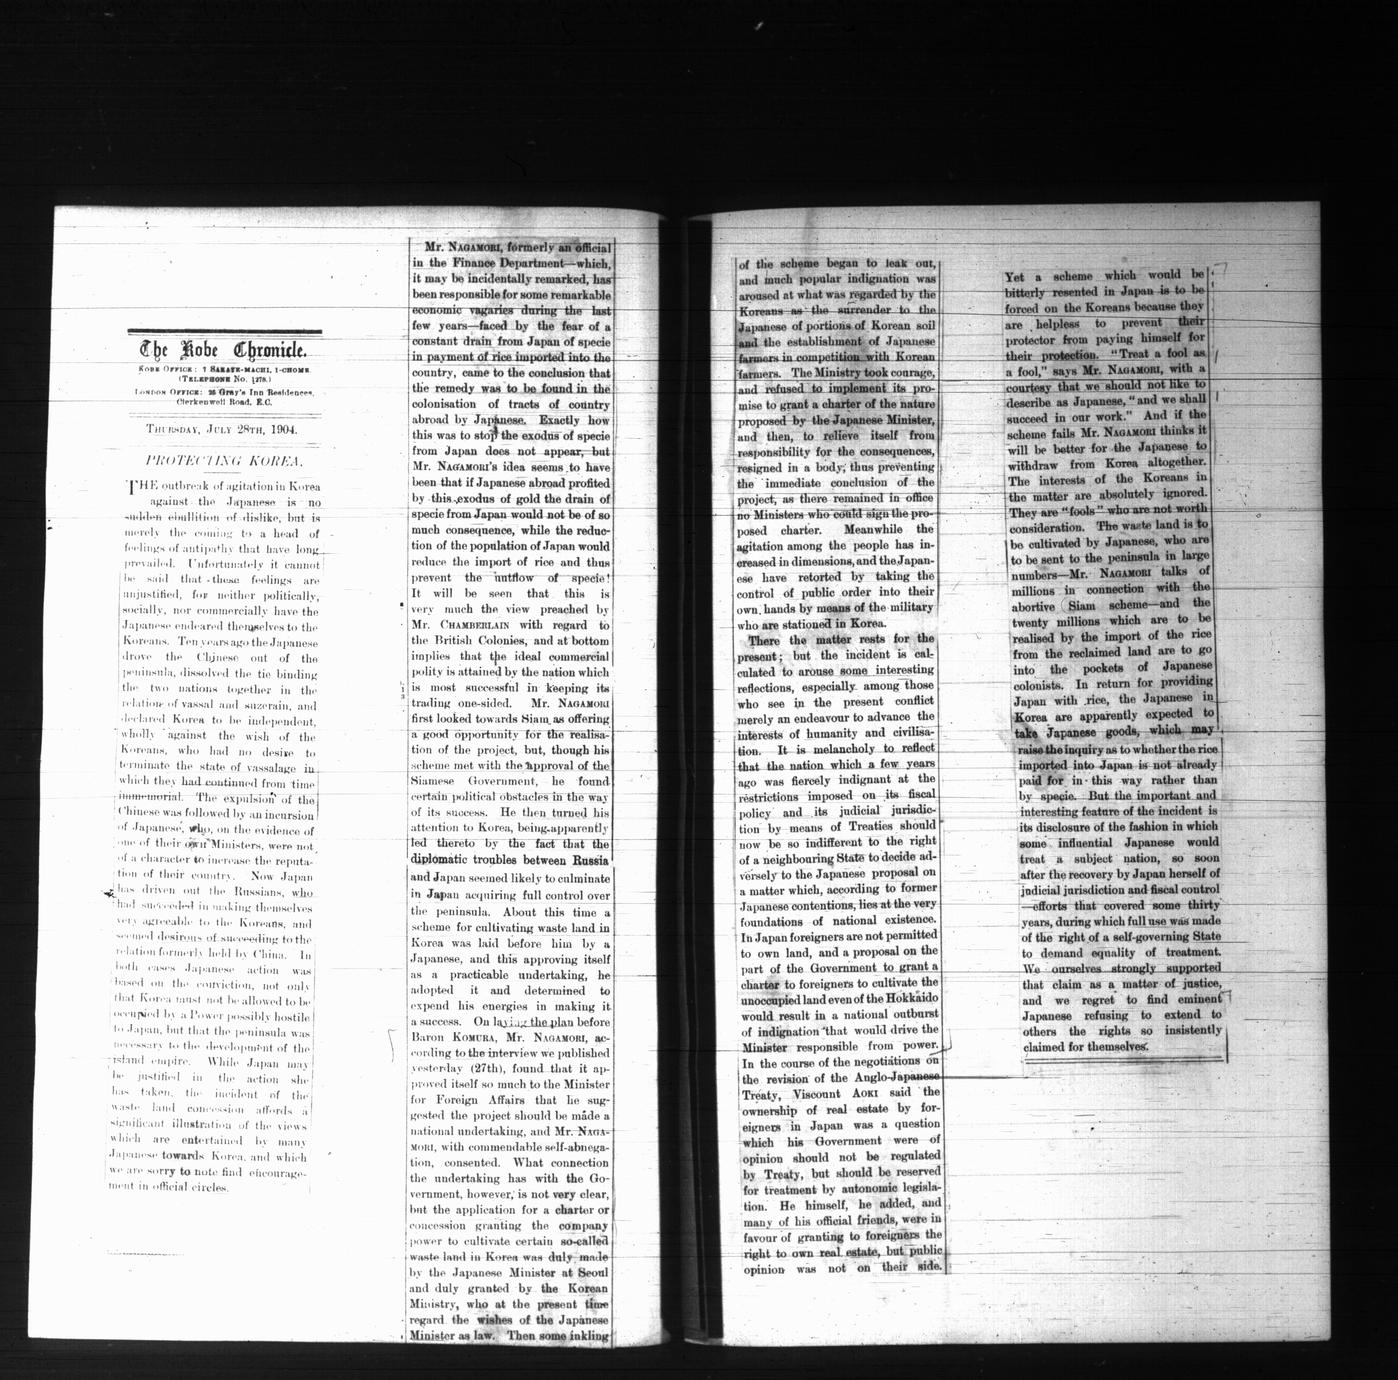 The Kobe Chronicle.
KOBE OFFICE: 7 SAKAYE-MACHI, 1-CHOME
(TELEPHONE No. 1278.)
LONDON OFFICE: 25 Gray's Inn Residences,
Clerkenwell Road, E.C.
THURSDAY, JULY 28TH, 1904.
PROTECTING KOREA.
THE outbreak of agitation in Korea
against the Japanese is no
sudden ebullition of dislike, but is
merely the coming to a head of
feelings of antipathy that have long
prevailed. Unfortunately it cannot
be said that these feelings are
unjustified, for neither politically,
socially, nor commercially have the
Japanese endeared themselves to the
Koreans. Ten years ago the Japanese
drove the Chinese out of the
peninsula, dissolved the tie binding
the two nations together in the
relation of vassal and suzerain, and
declared Korea to be independent,
wholly against the wish of the
Koreans, who had no desire to
terminate the state of vassalage in
which they had continued from time
immemorial. The expulsion of the
Chinese was followed by an incursion
of Japanese, who, on the evidence of
one of their own Ministers, were not
of a character to increase the reputa-
tion of their country. Now Japan
has driven out the Russians, who
had succeeded in making themselves
very agreeable to the Koreans, and
seemed desirous of succeeding to the
relation formerly held by China. In
both cases Japanese action was
based on the conviction, not only
that Korea must not be allowed to be
occupied by a Power possibly hostile
to Japan, but that the peninsula was
necessary to the development of the
island empire. While Japan may
be justified in the action she
has taken, the incident of the
waste land concession affords a
significant illustration of the views
which are entertained by many
Japanese towards Korea, and which
we are sorry to note find encourage-
ment in official circles.
Mr. NAGAMORI, formerly an official
in the Finance Department—which,
it may be incidentally remarked, has
been responsible for some remarkable
economic vagaries during the last
few years—faced by the fear of a
constant drain from Japan of specie
in payment of rice imported into the
country, came to the conclusion that
the remedy was to be found in the
colonisation of tracts of country
abroad by Japanese. Exactly how
this was to stop the exodus of specie
from Japan does not appear, but
Mr. NAGAMORI'S idea seems to have
been that if Japanese abroad profited
by this exodus of gold the drain of
specie from Japan would not be of so
much consequence, while the reduc-
tion of the population of Japan would
reduce the import of rice and thus
prevent the outflow of specie!
It will be seen that this is
very much the view preached by
Mr. CHAMBERLAIN with regard to
the British Colonies, and at bottom
implies that the ideal commercial
polity is attained by the nation which
is most successful in keeping its
trading one-sided. Mr. NAGAMORI
first looked towards Siam as offering
a good opportunity for the realisa-
tion of the project, but, though his
scheme met with the approval of the
Siamese Government, he found
certain political obstacles in the way
of its success. He then turned his
attention to Korea, being apparently
led thereto by the fact that the
diplomatic troubles between Russia
and Japan seemed likely to culminate
in Japan acquiring full control over
the peninsula. About this time a
scheme for cultivating waste land in
Korea was laid before him by a
Japanese, and this approving itself
as a practicable undertaking, he
adopted it and determined to
expend his energies in making it
a success. On laying the plan before
Baron KOMURA, Mr. NAGAMORI, ac-
cording to the interview we published
yesterday (27th), found that it ap-
proved itself so much to the Minister
for Foreign Affairs that he sug-
gested the project should be made a
national undertaking, and Mr. NAGA-
MORI, with commendable self-abnega-
tion, consented. What connection
the undertaking has with the Go-
vernment, however, is not very clear,
but the application for a charter or
concession granting the company
power to cultivate certain so-called
waste land in Korea was duly made
by the Japanese Minister at Seoul
and duly granted by the Korean
Ministry, who at the present time
regard the wishes of the Japanese
Minister as law. Then some inkling
of the scheme began to leak out,
and much popular indignation was
aroused at what was regarded by the
Koreans as the surrender to the
Japanese of portions of Korean soil
and the establishment of Japanese
farmers in competition with Korean
farmers. The Ministry took courage,
and refused to implement its pro-
mise to grant a charter of the nature
proposed by the Japanese Minister,
and then, to relieve itself from
responsibility for the consequences,
resigned in a body, thus preventing
the immediate conclusion of the
project, as there remained in office
no Ministers who could sign the pro-
posed charter. Meanwhile the
agitation among the people has in-
creased in dimensions, and the Japan-
ese have retorted by taking the
control of public order into their
own hands by means of the military
who are stationed in Korea.
There the matter rests for the
present; but the incident is cal-
culated to arouse some interesting
reflections, especially among those
who see in the present conflict
merely an endeavour to advance the
interests of humanity and civilisa-
tion. It is melancholy to reflect
that the nation which a few years
ago was fiercely indignant at the
restrictions imposed on its fiscal
policy and its judicial jurisdic-
tion by means of Treaties should
now be so indifferent to the right
of a neighbouring State to decide ad-
versely to the Japanese proposal on
a matter which, according to former
Japanese contentions, lies at the very
foundations of national existence.
In Japan foreigners are not permitted
to own land, and a proposal on the
part of the Government to grant a
charter to foreigners to cultivate the
unoccupied land even of the Hokkaido
would result in a national outburst
of indignation that would drive the
Minister responsible from power.
In the course of the negotiations on
the revision of the Anglo-Japanese
Treaty, Viscount AOKI said the
ownership of real estate by for-
eigners in Japan was a question
which his Government were of
opinion should not be regulated
by Treaty, but should be reserved
for treatment by autonomic legisla-
tion. He himself, he added, and
many of his official friends, were in
favour of granting to foreigners the
right to own real estate, but public
opinion was not on their side.
Yet a scheme which would be
bitterly resented in Japan is to be
forced on the Koreans because they
are helpless to prevent their
protector from paying himself for
their protection. "Treat a fool as
a fool," says Mr. NAGAMORI, with a
courtesy that we should not like to
describe as Japanese, "and we shall
succeed in our work." And if the
scheme fails Mr. NAGAMORI thinks it
will be better for the Japanese to
withdraw from Korea altogether.
The interests of the Koreans in
the matter are absolutely ignored.
They are "fools" who are not worth
consideration. The waste land is to
be cultivated by Japanese, who are
to be sent to the peninsula in large
numbers—Mr. NAGAMORI talks of
millions in connection with the
abortive Siam scheme—and the
twenty millions which are to be
realised by the import of the rice
from the reclaimed land are to go
into the pockets of Japanese
colonists. In return for providing
Japan with rice, the Japanese in
Korea are apparently expected to
take Japanese goods, which may
raise the inquiry as to whether the rice
imported into Japan is not already
paid for in this way rather than
by specie. But the important and
interesting feature of the incident is
its disclosure of the fashion in which
some influential Japanese would
treat a subject nation, so soon
after the recovery by Japan herself of
judicial jurisdiction and fiscal control
—efforts that covered some thirty
years, during which full use was made
of the right of a self-governing State
to demand equality of treatment.
We ourselves strongly supported
that claim as a matter of justice,
and we regret to find eminent
Japanese refusing to extend to
others the rights so insistently
claimed for themselves.